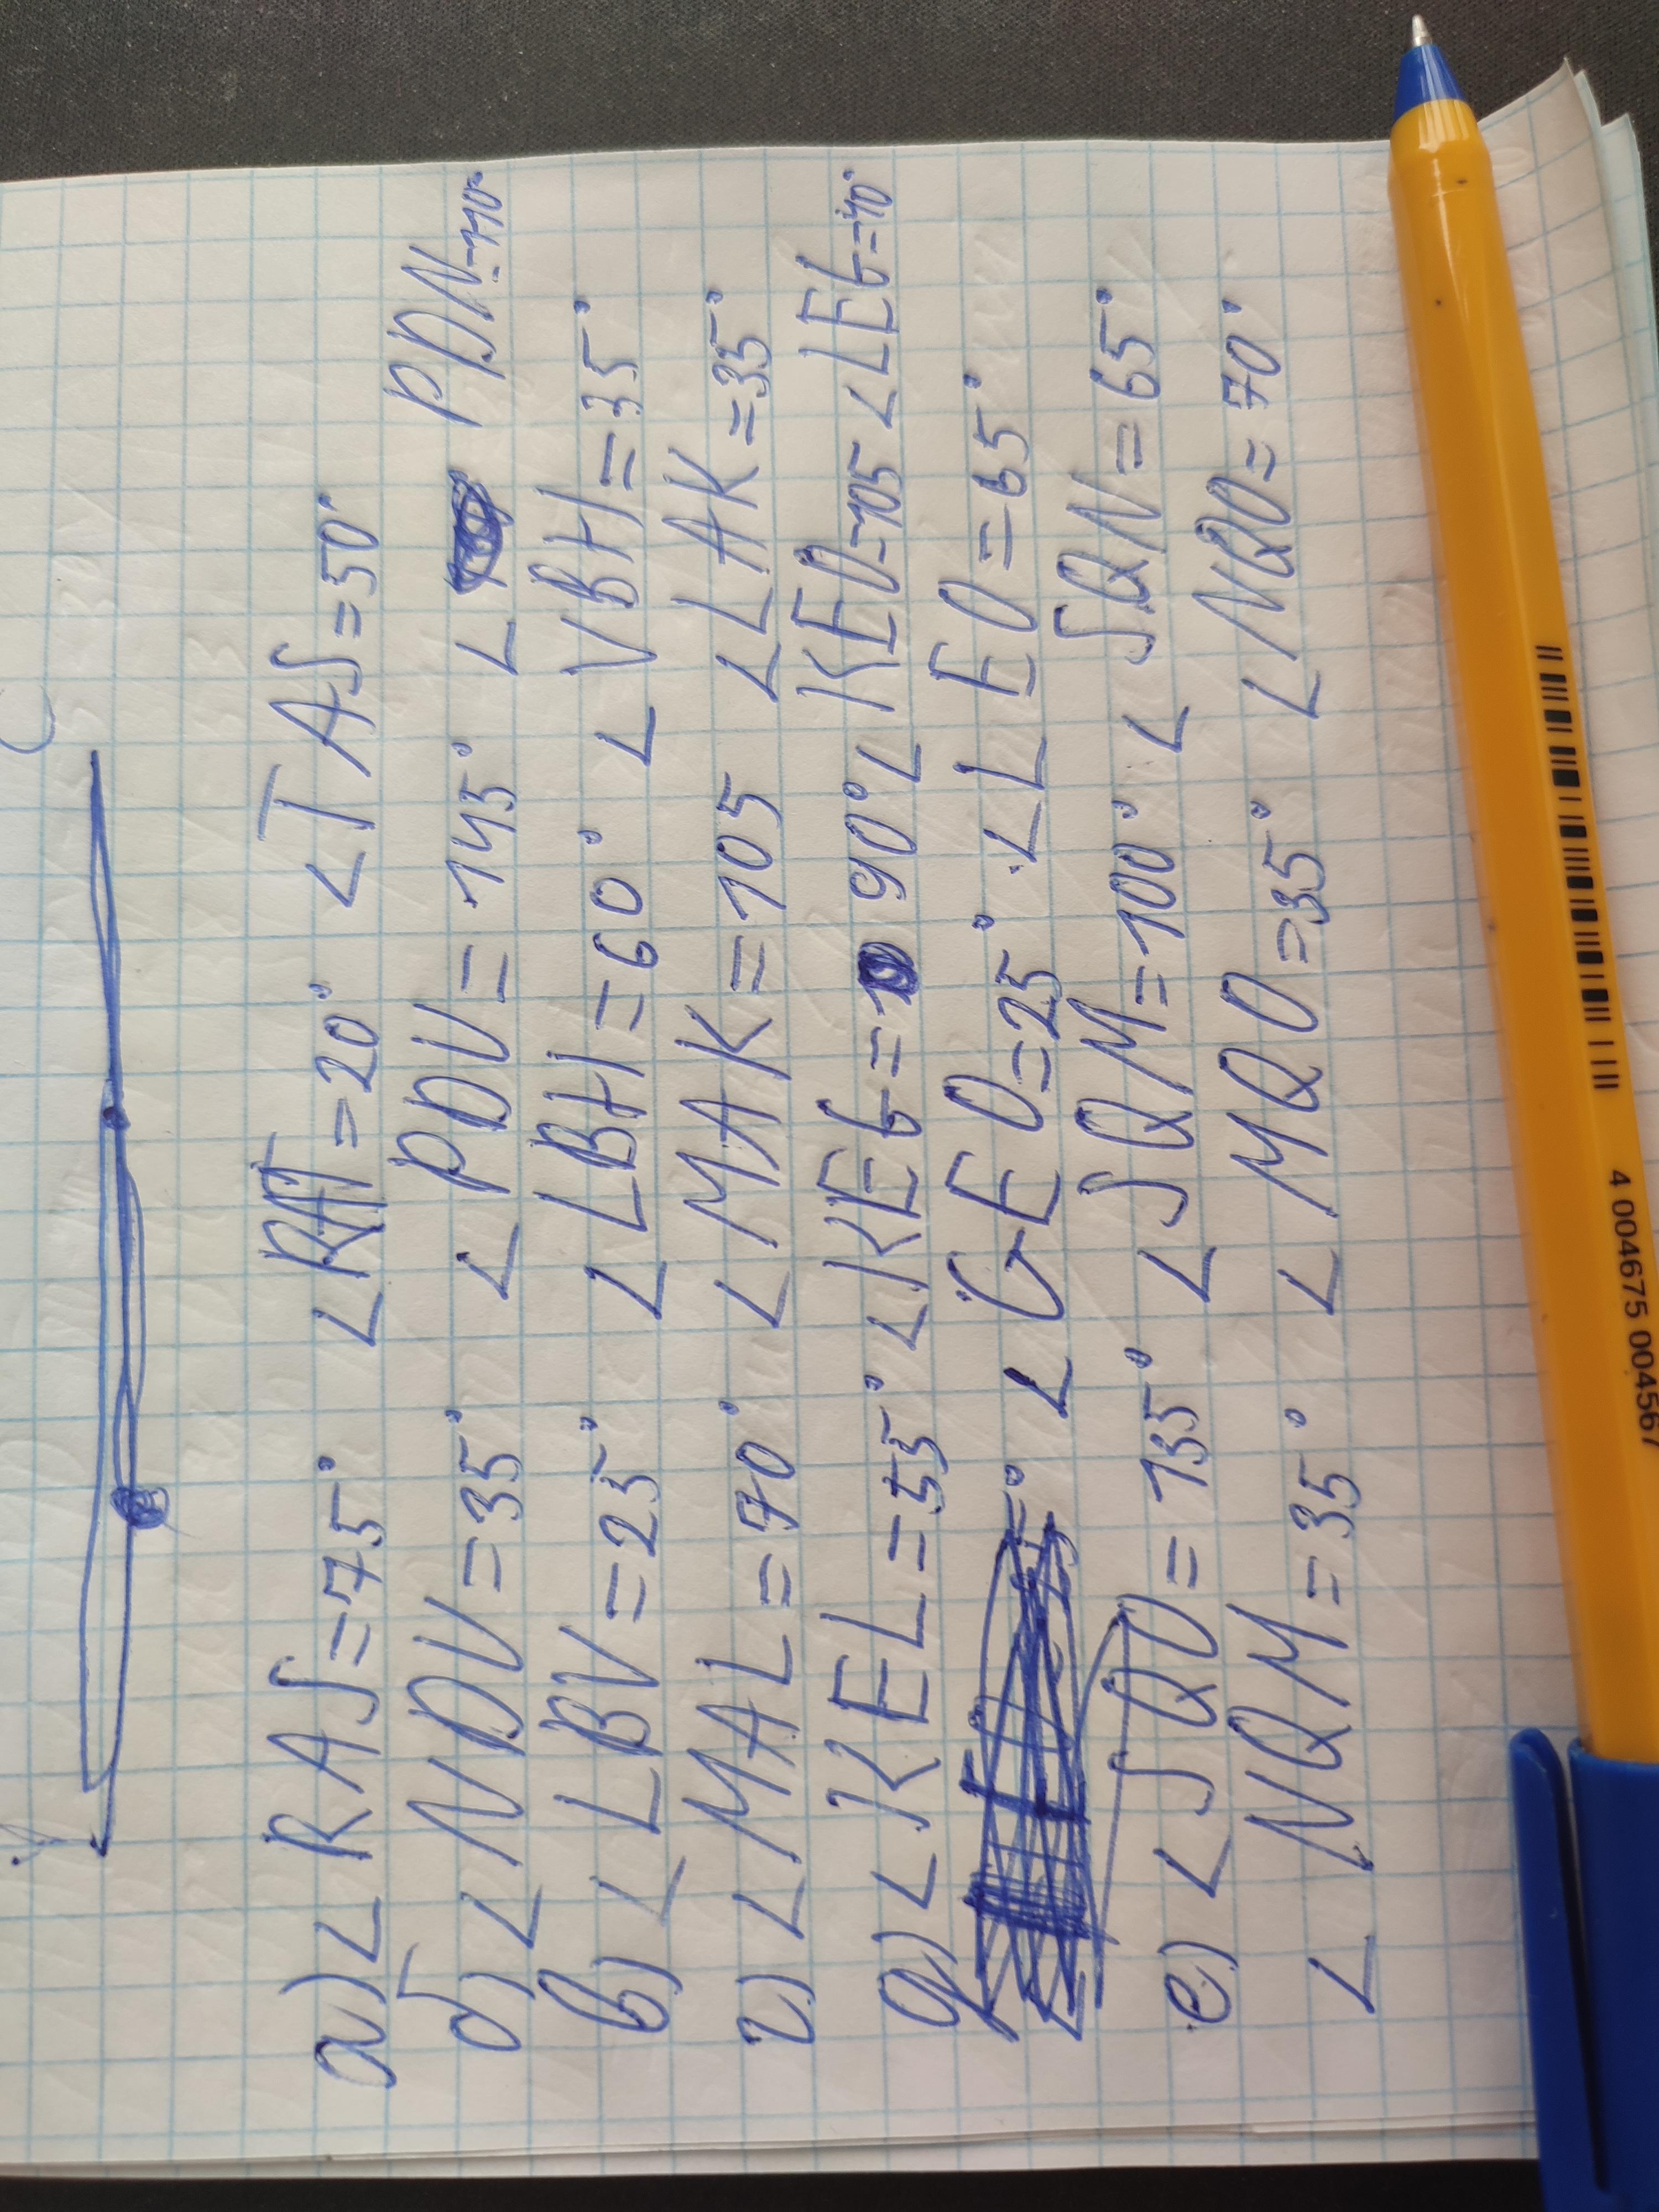 а) ∠RAS=75° ∠RAT=20° ∠TAS=50°
б) ∠NDV=35° ∠PDV=145° ∠PDN=110°
в) ∠LBV=25° ∠LBH=60° ∠VBH=35°
г) ∠MAL=70° ∠MAK=105 ∠LAK=35°
д) ∠KEL=55° ∠KEG=90° ∠KEO=105 ∠LEG=40°
∠GEO=25° ∠LEO=65°
е) ∠SQO=135° ∠SQM=100° ∠SQN=65°
∠NQM=35° ∠MQO=35° ∠NQO=70°
4 004675 004567